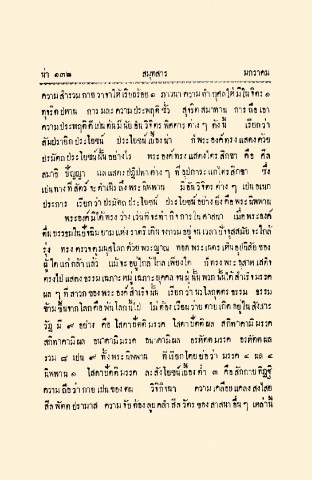 น่า ๑๓๒ สมุทสาร มกราคม
ความสำรวม กาย วาจา ใต้ เรียบร้อย ๑ ภาวนา ความ ทำ กุศล ใต้ มี ใน จิตร ๑
ทุจริต ปหาน การ ละ ความ ประพฤติ ชั่ว สุจริต สมาทาน การ ถือ เอา
ความ ประพฤติ ดี เปน ต้น มี นัย อัน วิจิตร พิศดาร ต่าง ๆ ดังนี้ เรียก ว่า
สัมปรายิก ประโยชน์ ประโยชน์ เบื้อง น่า ก็ พระองค์ ทรง แสดง ด้วย
ปรมัตถ ประโยชน์ นั้น อย่างไร พระองค์ ทรง แสดง ไตร สิกขา คือ ศีล
สมาธิ ปัญญา แล แสดง ปฏิปทา ต่าง ๆ ที่ อุปการะ แก่ ไตร สิกขา ซึ่ง
เปน ทาง ที่ สัตว์ จะ ดำเนิร ถึง พระ นิพพาน มี อัน วิจิตร ต่าง ๆ เปน อเนก
ประการ เรียก ว่า ปรมัตถ ประโยชน์ ประโยชน์ อย่าง ยิ่ง คือ พระ นิพพาน
พระองค์ มิ ได้ ทรง ว่าง เว้น ที่ จะ ทำ กิจ การ ใน สาสนา เมื่อ พระองค์
รุ่ง ทรง ตรวจ ดู มนุส โลก ด้วย พระญาณ ทอด พระ เนตร เห็น อุปนิสัย ของ
ผู้ ใด แก่ กล้า แล้ว แม้ จะ อยู่ ใกล้ ไกล เพียง ใด ก็ ทรง พระ อุสาห เสด็จ
ตรง ไป แสดง ธรรม เฉภาะ หมู่ เฉภาะ บุคคล จน ผู้ นั้น พวก นั้น ได้ สำเร็จ มรรค
ผล ๆ ที่ สาวก ของ พระองค์ สำเร็จ นั้น เรียก ว่า นวโลกุตตร ธรรม ธรรม
ข้าม ขึ้น จาก โลก คือ พ้น โลก นี้ ไป ไม่ ต้อง เวียน ว่าย ตาย เกิด อยู่ ใน สังสาร
วัฏ มี ๙ อย่าง คือ โสดาปัตติ มรรค โสดาปัตติ ผล สกิทาคามิ มรรค
สกิทาคามิ ผล อนาคามิ มรรค อนาคามิ ผล อรหัตต มรรค อรหัตต ผล
รวม ๘ เปน ๙ ทั้ง พระ นิพพาน ที่ เรียก โดย ย่อ ว่า มรรค ๔ ผล ๔
นิพพาน ๑ โสดาปัตติ มรรค ละ สังโยชน์ เบื้อง ต่ำ ๓ คือ สักกาย ทิฏฐิ
ความ ถือ ว่า กาย เปน ของ ตน วิจิกิจฉา ความ เคลือบ แคลง สงไสย
สีลพัตต ปรามาส ความ จับ ต้อง ลูบ คลำ ศีล วัตร ของ สาสนา อื่น ๆ เหล่านี้